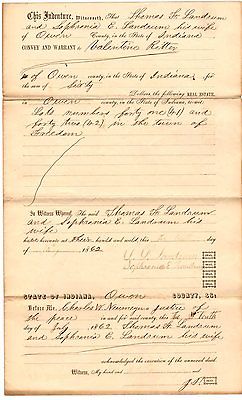 This Indenture, Witnesseth, That Thomas H. Landrum
and Sophronia E. Landrum his wife
of Owen County, in the State of Indiana
CONVEY AND WARRANT to Valentine Ritter
of Owen county, in the State of Indiana, for
the sum of Sixty
Dollars, the following REAL ESTATE,
in Owen county, in the State of Indiana, to wit:
Lots numbers forty one (41) and
forty two (42) in the town of
Freedom
In Witness Whereof, The said Thomas H Landrum
and Sophronia E. Landrum his
wife
hereunto set their hands and seals this day
of 1862
Sophronia E. Landrum
STATE OF INDIANA, Owen COUNTY, SS:
Before Me, Charles W. Neumeyer a justice of
the peace in and for said county, this
day
of July 1862 Thomas H Landrum
and Sophronia E. Landrum his wife
acknowledged the execution of the annexed deed.
Witness, My hand and
J.P.